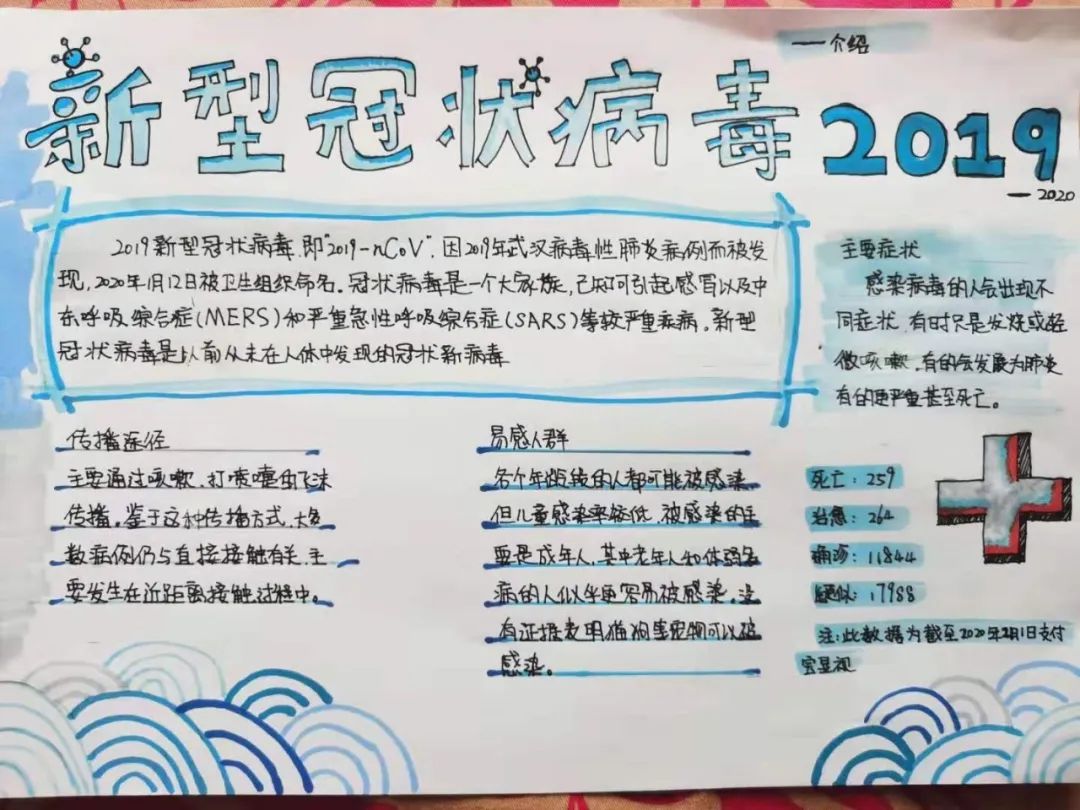 ——介绍
新型冠状病毒2019
—2020
2019新型冠状病毒,即"2019-nCoV",因2019年武汉病毒性肺炎病例而被发
现,2020年1月12日被卫生组织命名。冠状病毒是一个大家族,已知可引起感冒以及中
东呼吸综合症(MERS)和严重急性呼吸综合症(SARS)等较严重疾病。新型
冠状病毒是以前从未在人体中发现的冠状新病毒
主要症状
感染病毒的人会出现不
同症状,有时只是发烧或轻
微咳嗽,有的会发展为肺炎
有的更严重甚至死亡。
传播途径
主要通过咳嗽,打喷嚏的飞沫
传播。鉴于这种传播方式,大多
数病例仍与直接接触有关,主
要发生在近距离接触过程中。
易感人群
各个年龄段的人都可能被感染,
但儿童感染率较低,被感染的主
要是成年人,其中老年人和体弱多
病的人似乎更容易被感染。没
有证据表明猫狗等宠物可以被
感染。
死亡:259
治愈:264
确诊:11844
疑似:17988
注:此数据为截至2020年2月1日支付
宝显视